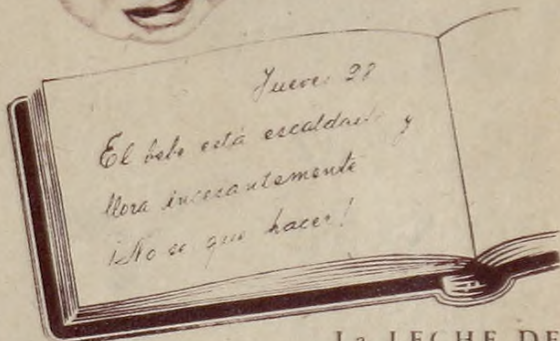 Jueves 28
El bebe está escaldado y
llora incesantemente
¡No se que hacer!
La LECHE DE